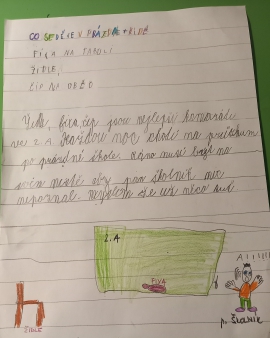 CO SE DĚJE V PRÁZDNÉ TŘÍDĚ
FIXA NA TABULI
ŽIDLE,
ČIP NA
Židle, fixa, čip jsou nejlepší kamarádi
ve 2. A Každou noc chodí na průzkum
po prázdné škole. Ráno musí být na
svém místě aby pan školník nic
nepoznal. Myslím že už něco
2. A
FIXA
ŽIDLE
p. Školník